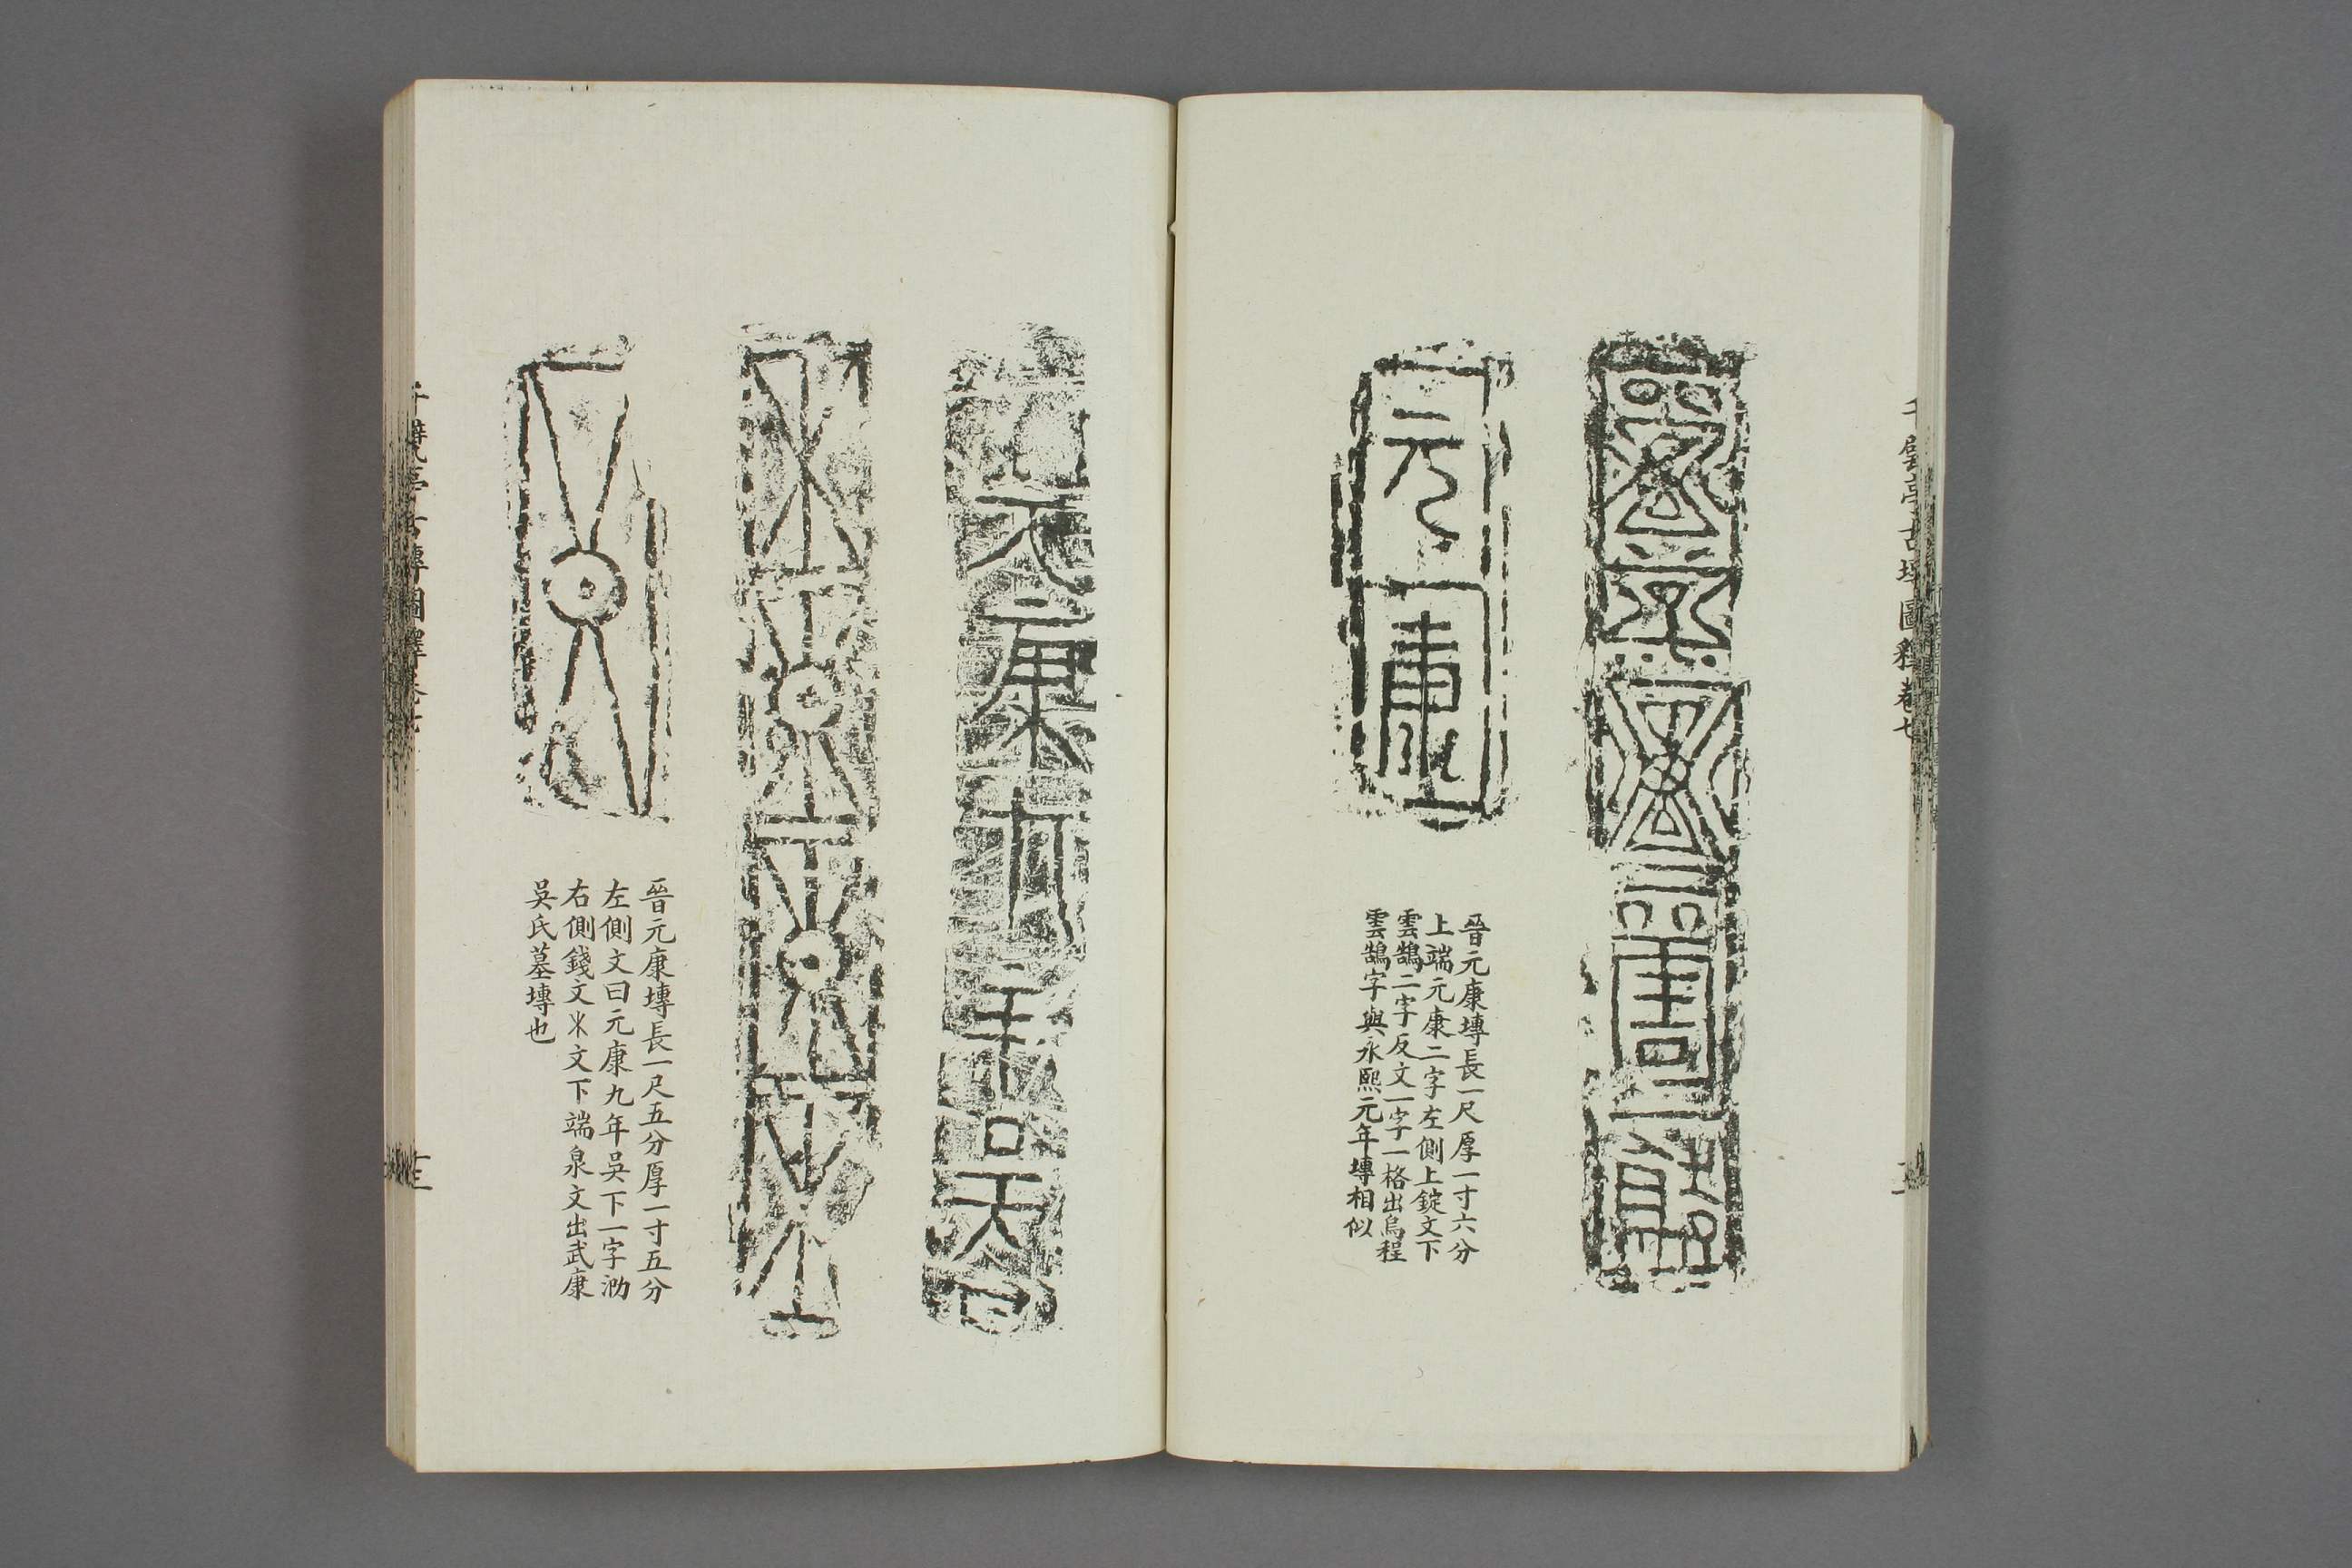 千甓亭古塼圖釋卷七
元康
晉元康塼長一尺厚一寸六分
上端元康二字左側上錠文下
雲鵠二字反文一字一格出烏程
雲鵠字與永熙元年塼相似
元康九年吳
晉元康塼長一尺五分厚一寸五分
左側文曰元康九年吳下一字泐
右側錢文乂文下端泉文出武康
吳氏墓塼也
千甓亭古塼圖釋卷七